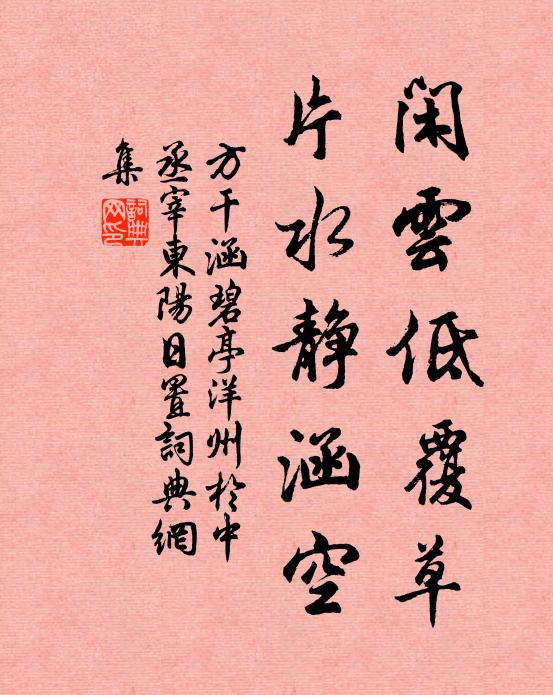 閑雲低覆草
片水静涵空
方干涵碧亭洋州於中
丞宰東陽日置詞典網
集
詞典
网印